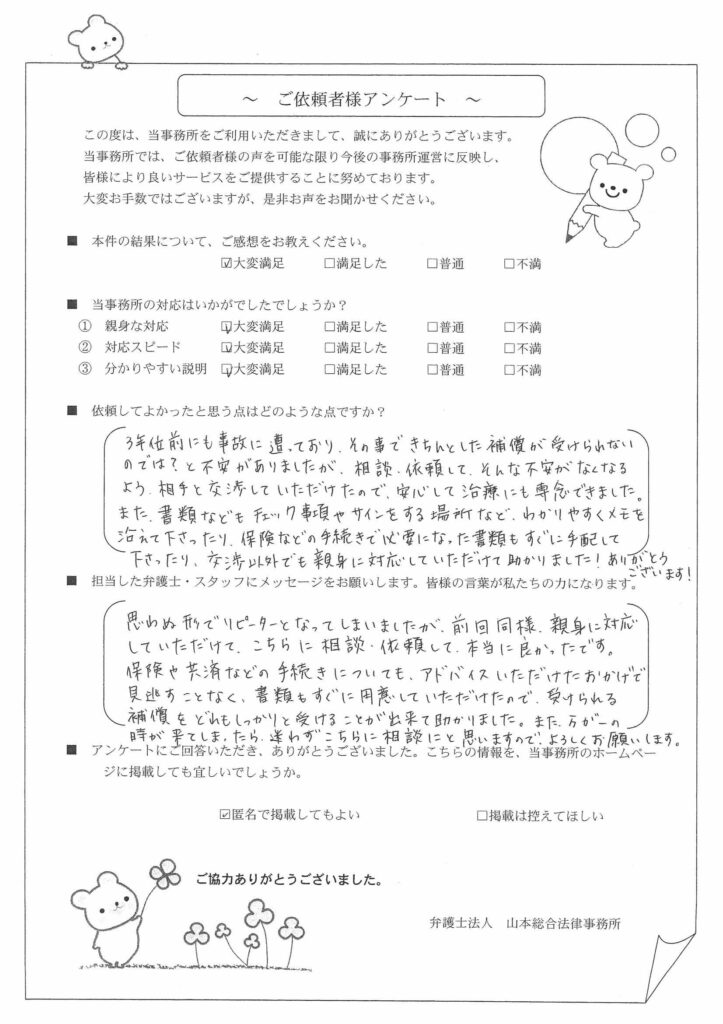 ～ ご依頼者様アンケート ～
この度は、当事務所をご利用いただきまして、誠にありがとうございます。
当事務所では、ご依頼者様の声を可能な限り今後の事務所運営に反映し、
皆様により良いサービスをご提供することに努めております。
大変お手数ではございますが、是非お声をお聞かせください。
■ 本件の結果について、ご感想をお教えください。
☑大変満足 □満足した □普通 □不満
■ 当事務所の対応はいかがでしたでしょうか？
① 親身な対応 ☑大変満足 □満足した □普通 □不満
② 対応スピード ☑大変満足 □満足した □普通 □不満
③ 分かりやすい説明 ☑大変満足 □満足した □普通 □不満
■ 依頼してよかったと思う点はどのような点ですか？
3年位前にも事故に遭っており、その事できちんとした補償が受けられない
のでは？と不安がありましたが、相談・依頼して、そんな不安がなくなる
よう、相手と交渉していただけたので、安心して治療にも専念できました。
また、書類などもチェック事項やサインをする場所など、わかりやすくメモを
沿えて下さったり、保険などの手続きで必要になった書類もすぐに手配して
下さったり、交渉以外でも親身に対応していただけて助かりました！ありがとう
ございます！
■ 担当した弁護士・スタッフにメッセージをお願いします。皆様の言葉が私たちの力になります。
思わぬ形でリピーターとなってしまいましたが、前回同様、親身に対応
していただけて、こちらに相談・依頼して、本当に良かったです。
保険や共済などの手続きについても、アドバイスいただけたおかげで
見逃すことなく、書類もすぐに用意していただけたので、受けられる
補償をどれもしっかりと受けることが出来て助かりました。また、万が一の
時が来てしまったら、迷わずこちらに相談にと思いますので、よろしくお願いします。
■ アンケートにご回答いただき、ありがとうございました。こちらの情報を、当事務所のホームペー
ジに掲載しても宜しいでしょうか。
☑匿名で掲載してもよい □掲載は控えてほしい
ご協力ありがとうございました。
弁護士法人 山本総合法律事務所